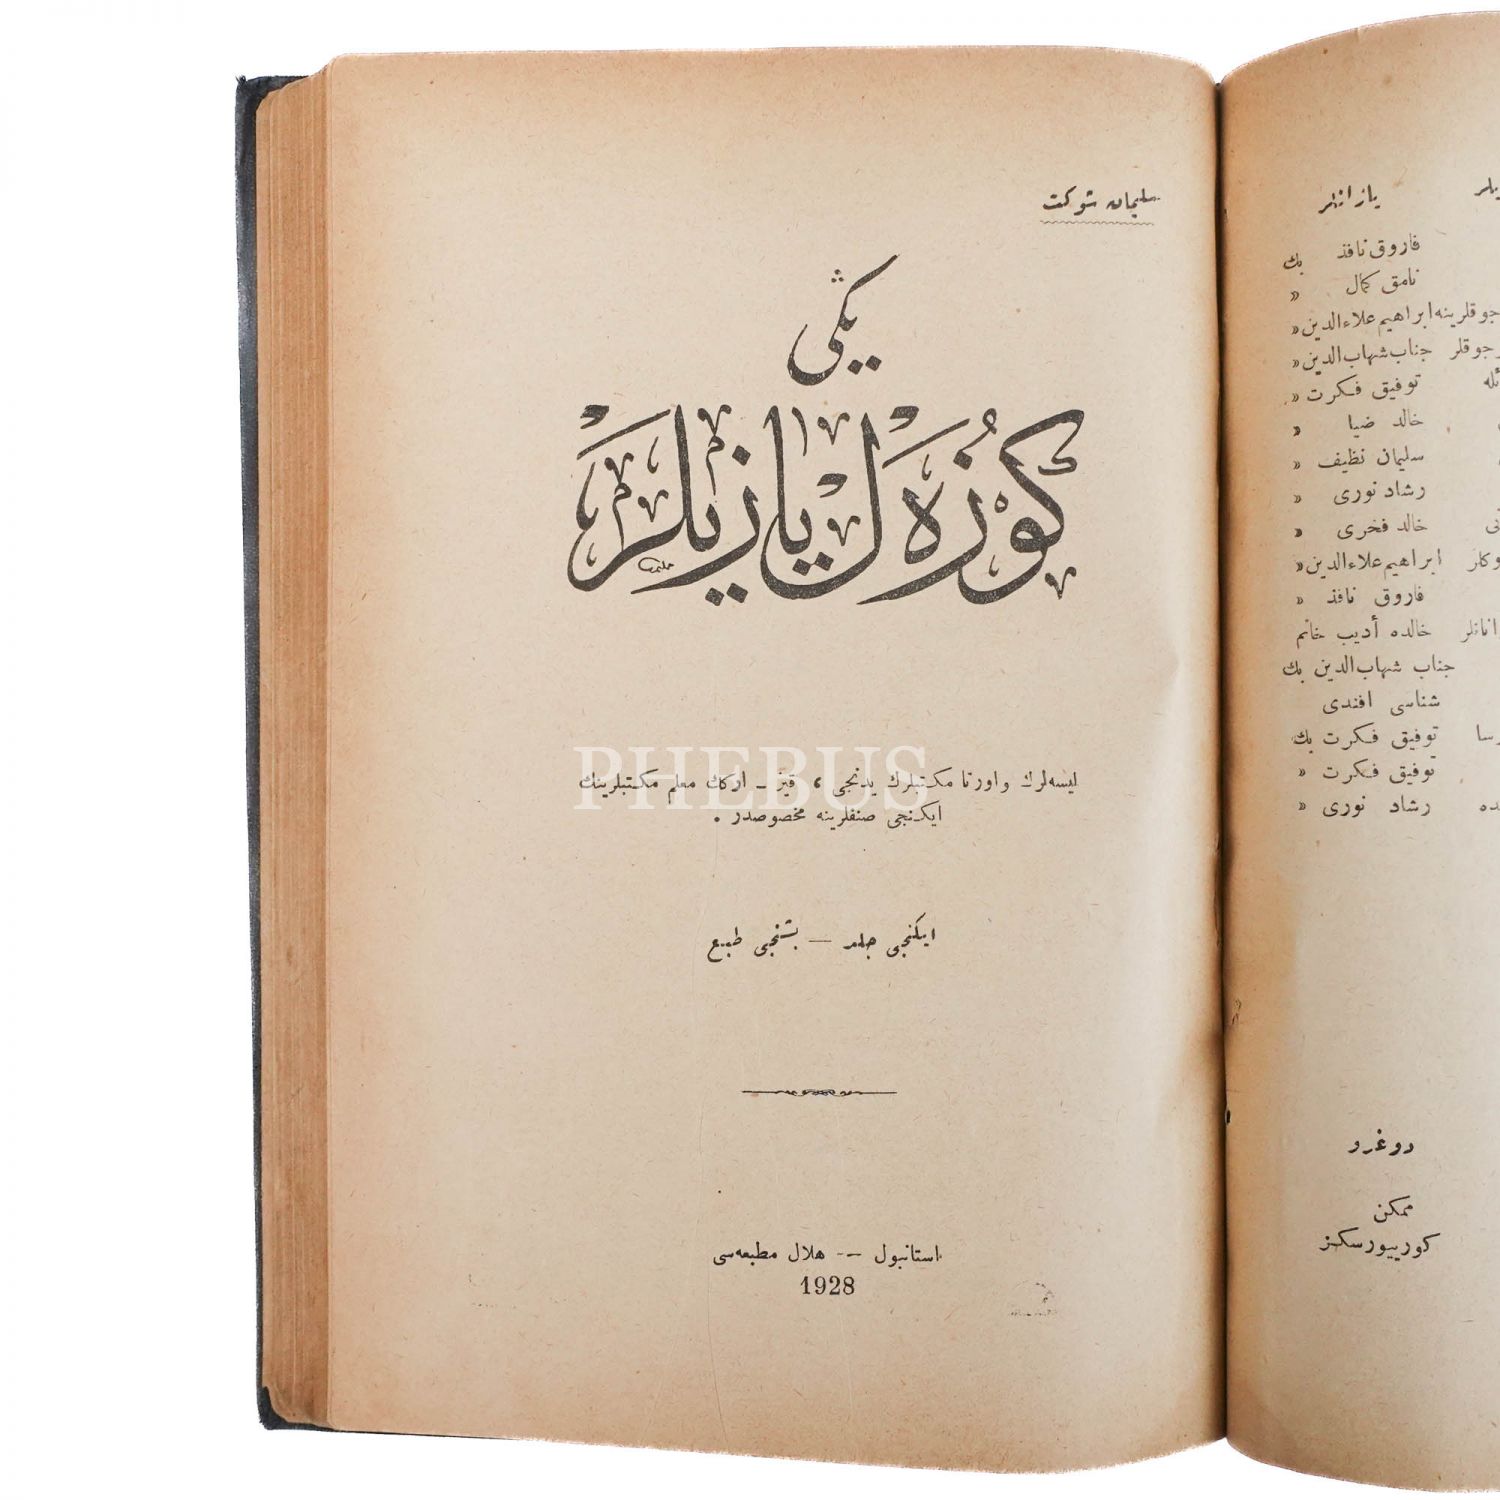 سلیمان شوکت
یڭی
كوزەل یازیلر
لیسەلرك و اورتا مكتبلرك یدنجی ، قیز ـ اركك معلم مكتبلرینك
ایكنجی صنفلرینه مخصوصدر .
ایكنجی جلد — بشنجی طبع
استانبول -- هلال مطبعەسی
1928
PHEBUS
یازانلر
فاروق نافذ بك
نامق كمال »
ابراهیم علاءالدین »
جناب شهاب‌الدین »
توفیق فكرت »
خالد ضیا »
سلیمان نظیف »
رشاد نوری »
خالد فخری »
ابراهیم علاءالدین »
فاروق نافذ »
خالده أدیب خانم
جناب شهاب‌الدین بك
شناسی افندی
توفیق فكرت بك
توفیق فكرت »
رشاد نوری »
دوغرو
ممكن
كورییورسكز